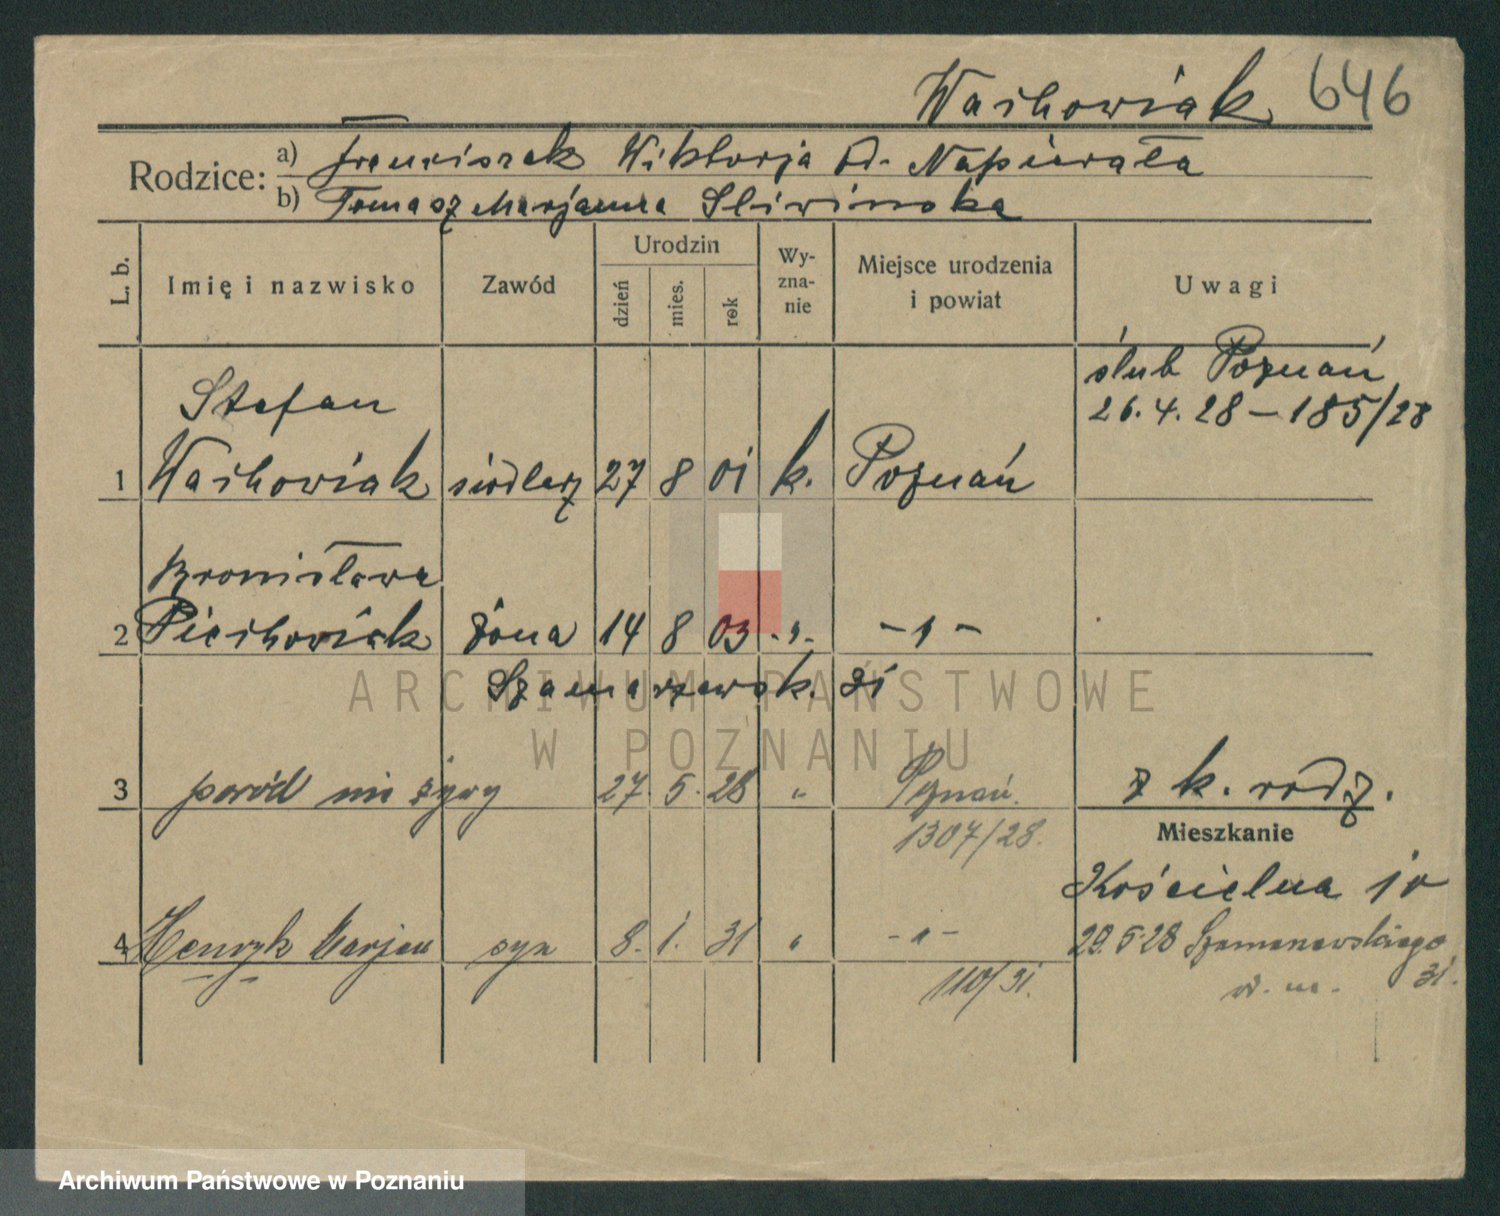 Wachowiak 646
Rodzice: a) Franciszek Wiktorja Napierała
b) Tomasz Marjanna Sliwinska
L. b.
Imię i nazwisko
Zawód
Urodzin
dzień mies. rok
Wy-
zna-
nie
Miejsce urodzenia
i powiat
Uwagi
ślub Poznań
26. 4. 28 – 185/28
Stefan
1 Wachowiak siodlarz 27 8 01 k. Poznań
Bronisława
2 Piechowiak żona 14 8 03 -"- -"-
31
ARCHIWUM PAŃSTWOWE
W POZNANIU
3 poród nieżywy 27. 5. 28 " Poznań. z k. rodz.
1307/28.
Mieszkanie
Kościelna 10
4 Henryk Marjan syn 8. 1. 31 " -"- 29.5.28 Szamarzewskiego
110/31. 31.
Archiwum Państwowe w Poznaniu